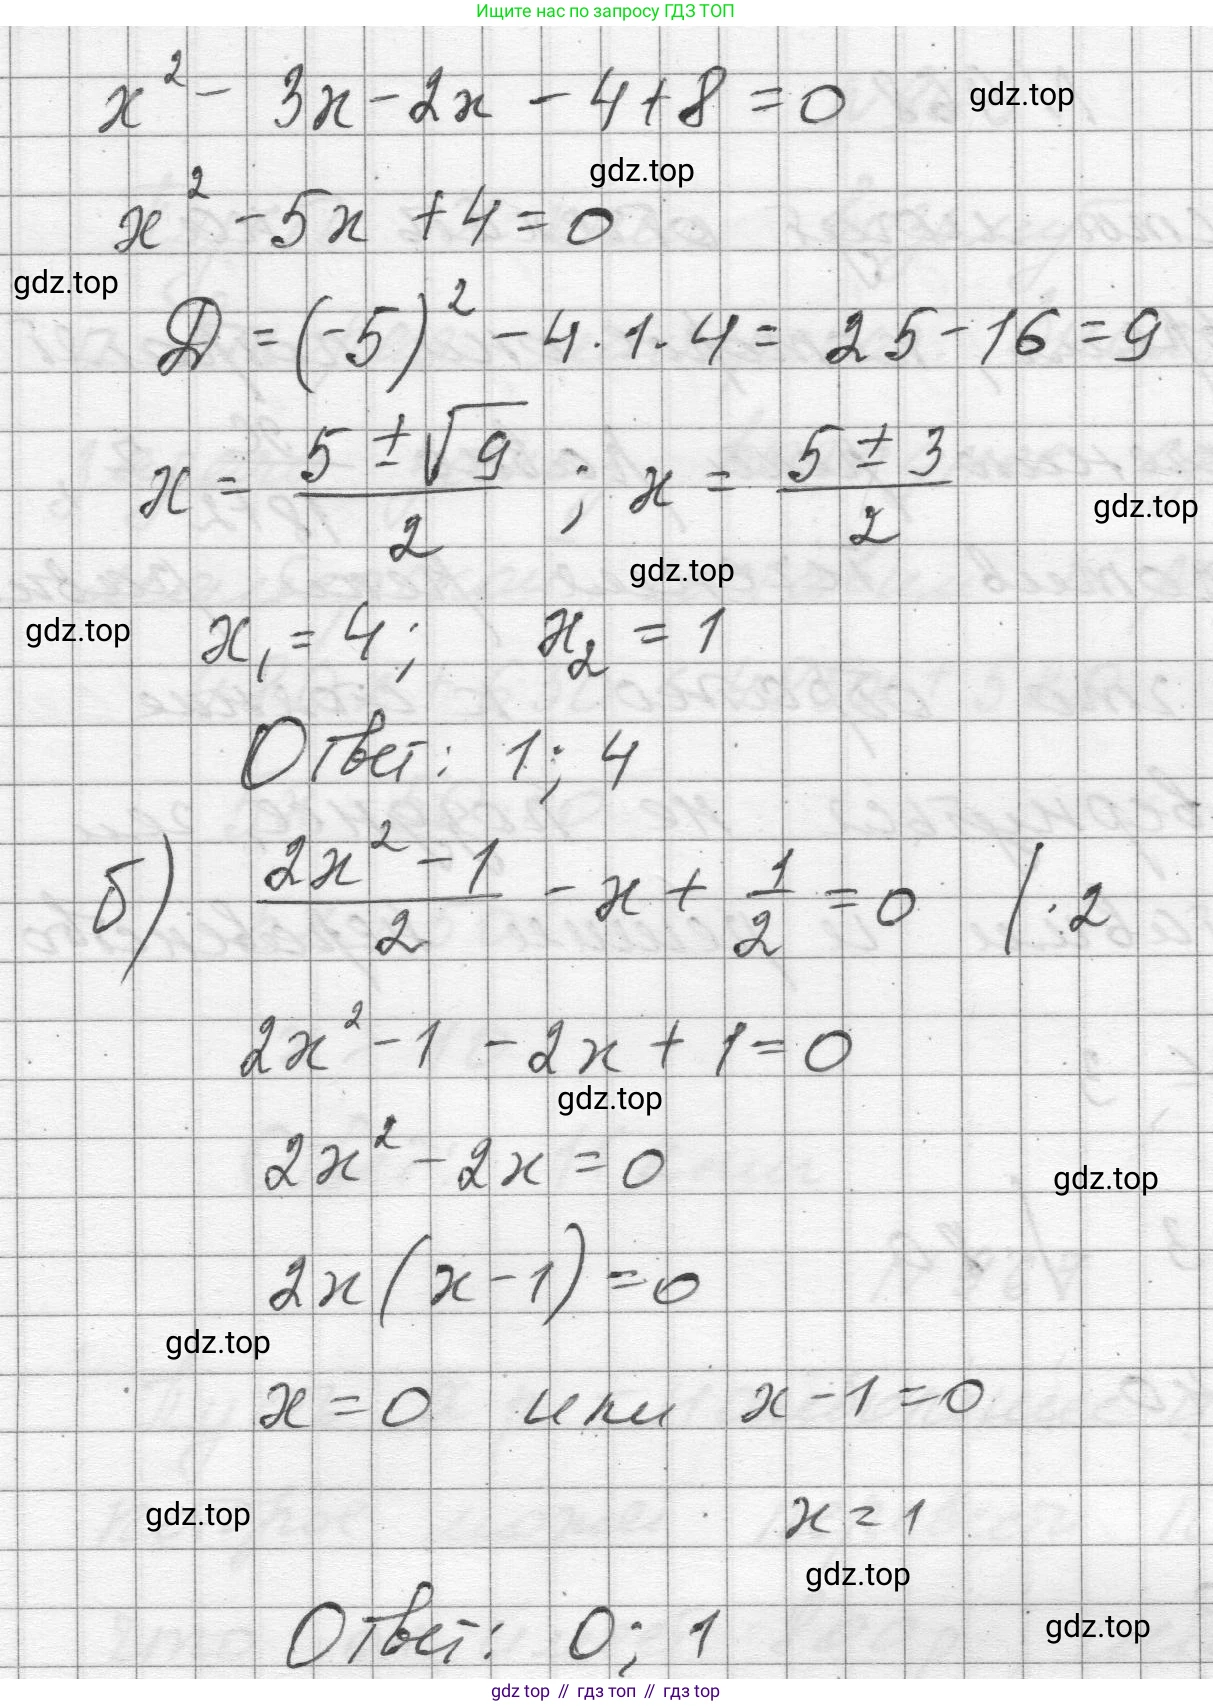 Ищите нас по запросу ГДЗ ТОП
x² - 3x - 2x - 4 + 8 = 0
gdz.top
gdz.top
x² - 5x + 4 = 0
gdz.top
Д = (-5)² - 4 · 1 · 4 = 25 - 16 = 9
x = (5 ± √9)/2 ; x = (5 ± 3)/2
gdz.top
gdz.top
gdz.top
x₁ = 4; x₂ = 1
Ответ: 1; 4
б) (2x² - 1)/2 - x + 1/2 = 0 | · 2
2x² - 1 - 2x + 1 = 0
gdz.top
2x² - 2x = 0
gdz.top
2x(x - 1) = 0
gdz.top
x = 0 или x - 1 = 0
gdz.top
gdz.top
x = 1
gdz.top
gdz.top
Ответ: 0; 1
gdz top // гдз топ // gdz top